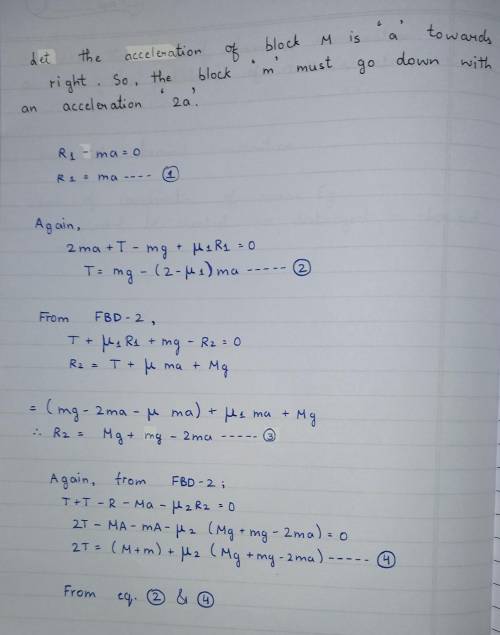 Let the acceleration of block M is 'a' towards
right. So, the block 'm' must go down with
an acceleration '2a'.
R1 - ma = 0
R1 = ma ---- ①
Again,
2ma + T - mg + μ1R1 = 0
T = mg - (2 - μ1) ma ----- ②
From FBD-2,
T + μ1R1 + mg - R2 = 0
R2 = T + μ ma + Mg
= (mg - 2ma - μ ma) + μ1 ma + Mg
∴ R2 = Mg + mg - 2ma ----- ③
Again, from FBD-2;
T+T - R - Ma - μ2R2 = 0
2T - MA - mA - μ2 (Mg + mg - 2ma) = 0
2T = (M+m) + μ2 (Mg + mg - 2ma) ----- ④
From eq. ② & ④